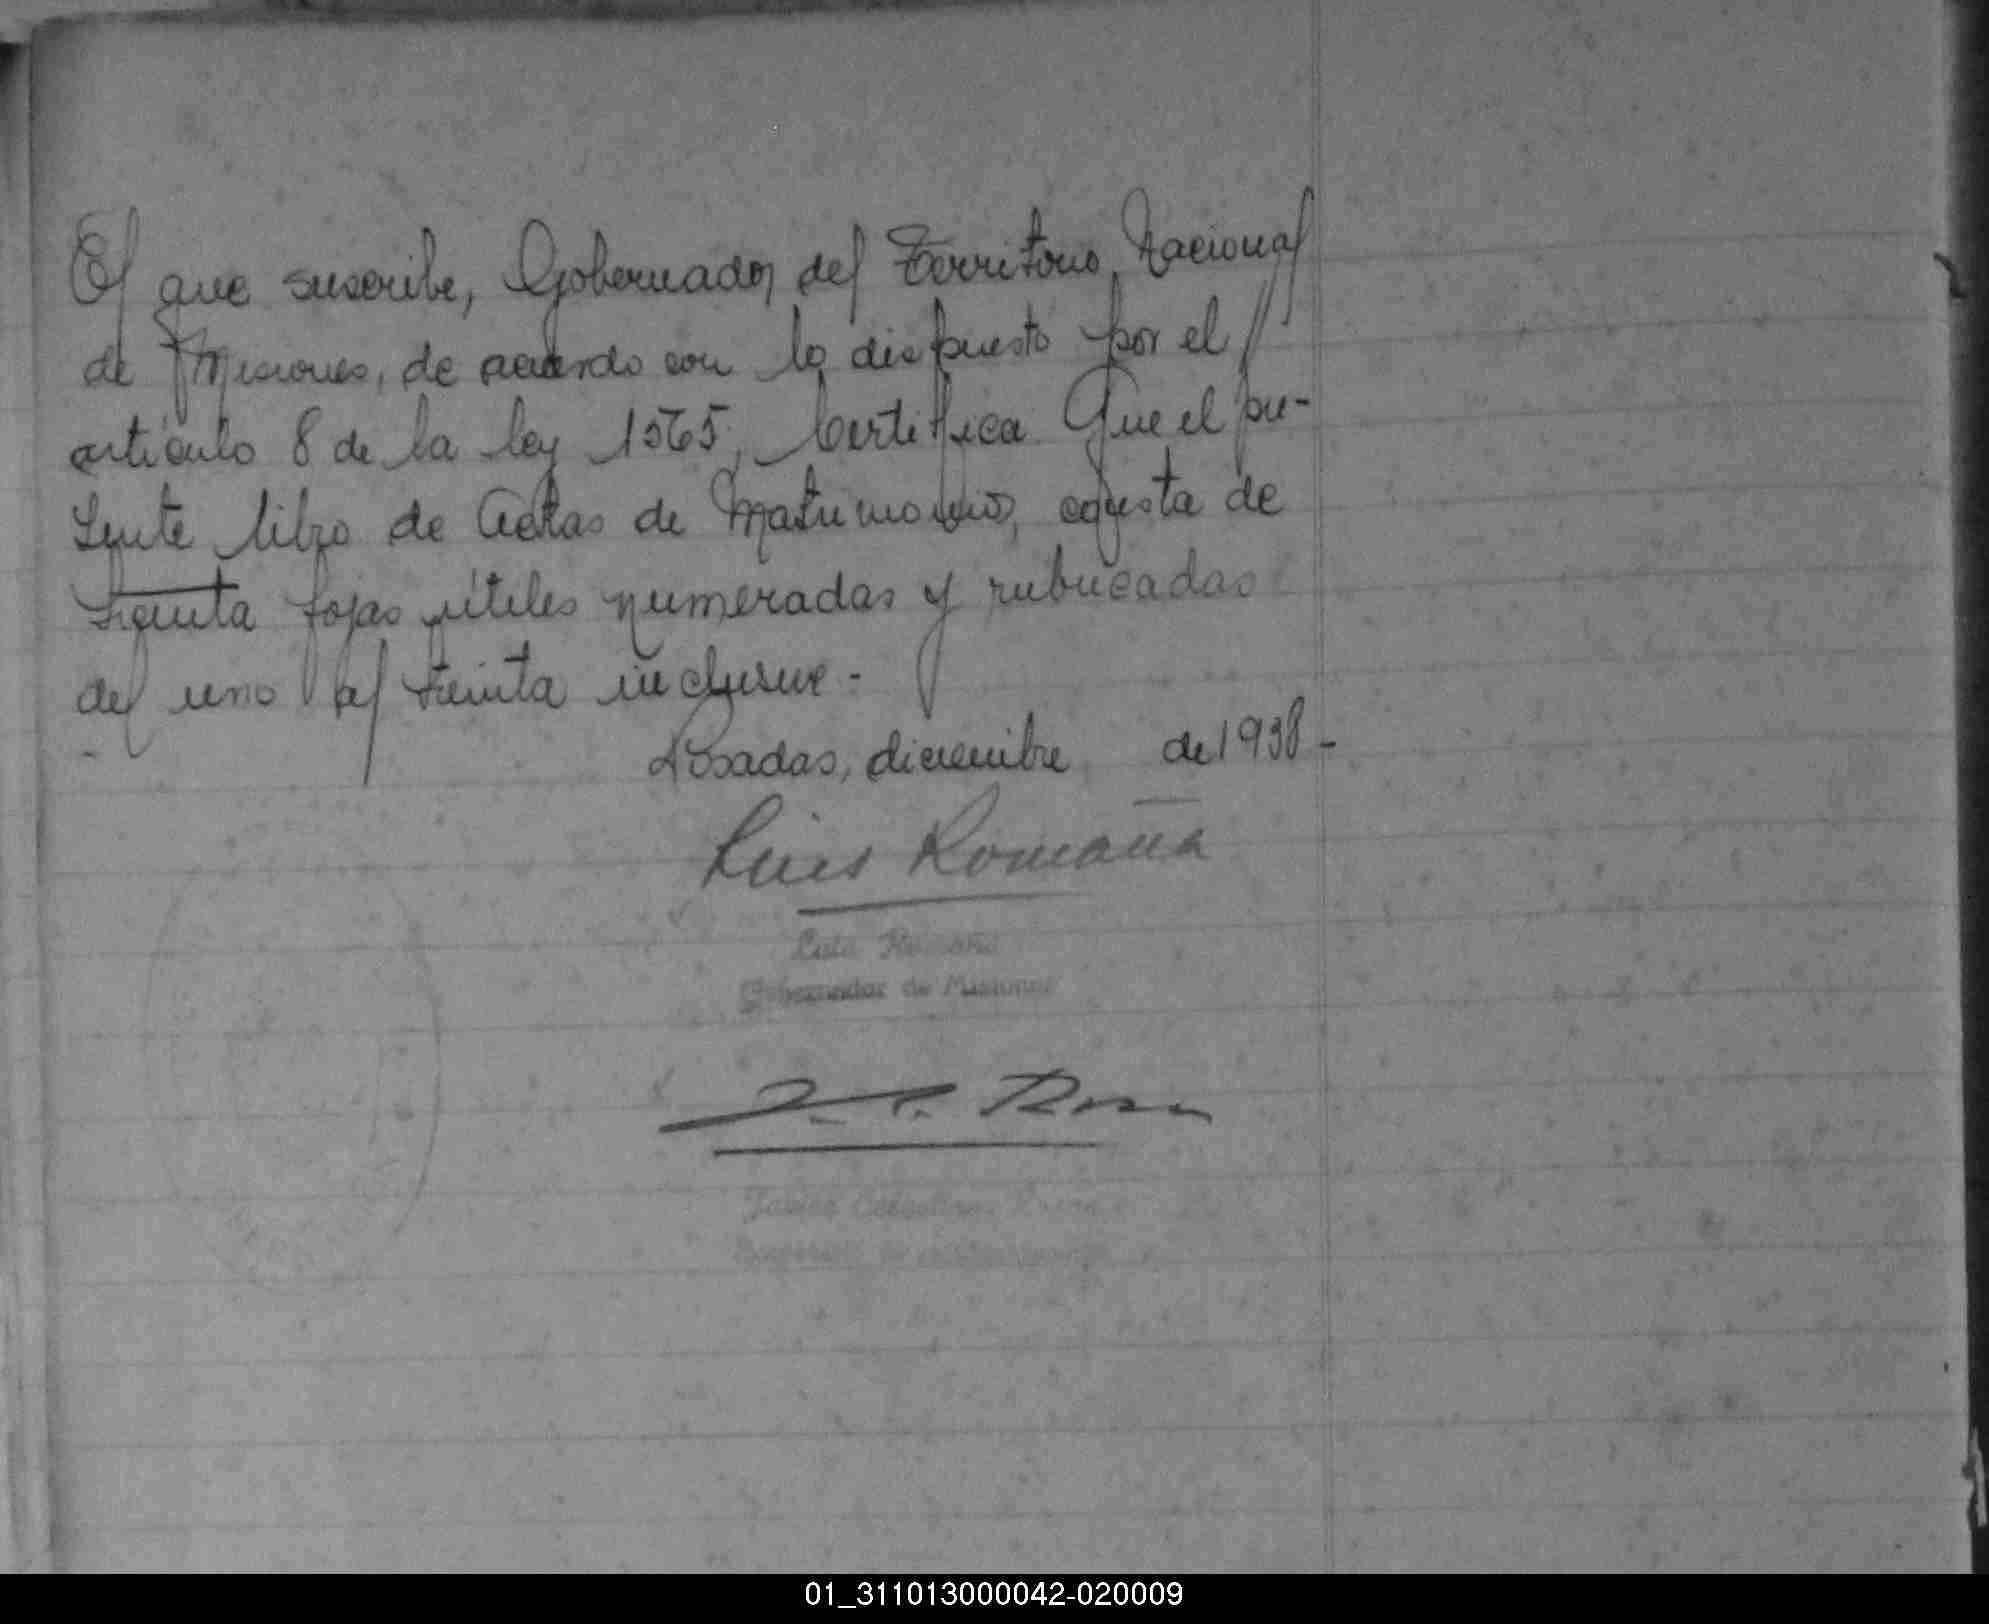 El que suscribe, Gobernador del Territorio Nacional
de Misiones, de acuerdo con lo dispuesto por el //
artículo 8 de la ley 1565, Certifica Que el pre-
sente libro de Actas de Matrimonio, consta de
treinta fojas útiles numeradas y rubricadas
del uno al treinta inclusive.-
Posadas, diciembre de 1938-
Luis Romaña
Luis Romaña
Gobernador de Misiones
01_311013000042-020009